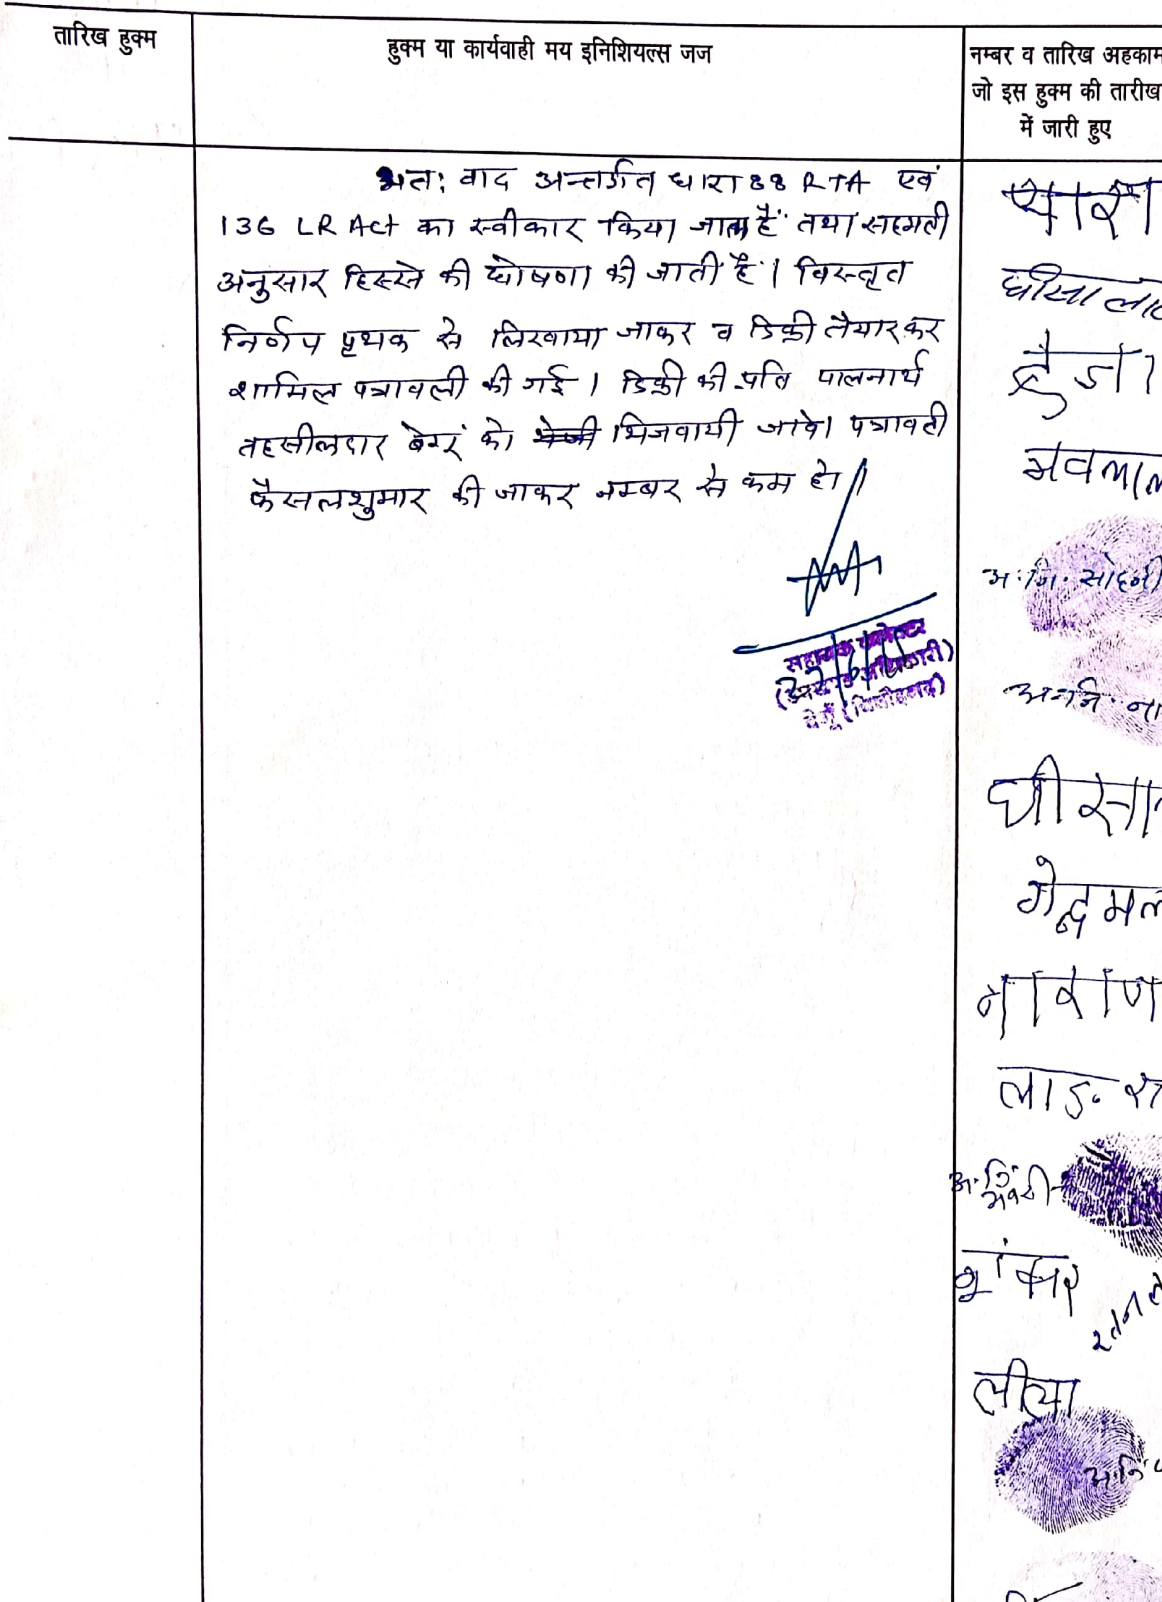 तारिख हुक्म
हुक्म या कार्यवाही मय इनिशियल्स जज
नम्बर व तारिख अहकाम
जो इस हुक्म की तारीख
में जारी हुए
अतः वाद अन्तर्गत धारा 88 RTA एवं
136 LR Act का स्वीकार किया जाता है तथा सहमती
अनुसार हिस्से की घोषणा की जाती है। विस्तृत
निर्णय पृथक से लिखवाया जाकर व डिक्री तैयार कर
शामिल पत्रावली की गई। डिक्री की प्रति पालनार्थ
तहसीलदार बेगूं को भिजवायी जावे। पत्रावली
फैसलशुमार की जाकर नम्बर से कम हो।
सहायक कलेक्टर
(उपखण्ड अधिकारी)
बेगूँ (चित्तौड़गढ़)
घीसाला
अ.नि. सोहनी
अ.नि. ना
घीसा
गेन्दमल
नाराण
अ.नि.
शंकर